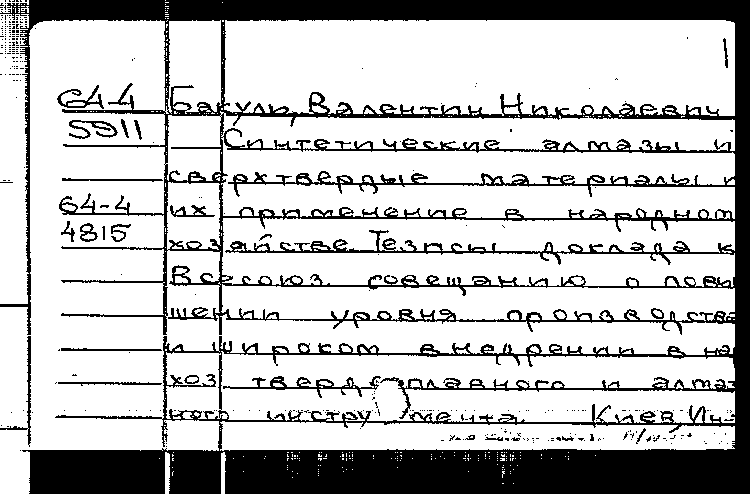 64-4 Бакуль, Валентин Николаевич
5911 Синтетические алмазы и
сверхтвердые материалы и
64-4 их применение в народном
4815 хозяйстве. Тезисы доклада к
Всесоюз. совещанию о повы
шении уровня производств
и широком внедрении в на
хоз твердосплавного и алмаз
ного инструмента. Киев,